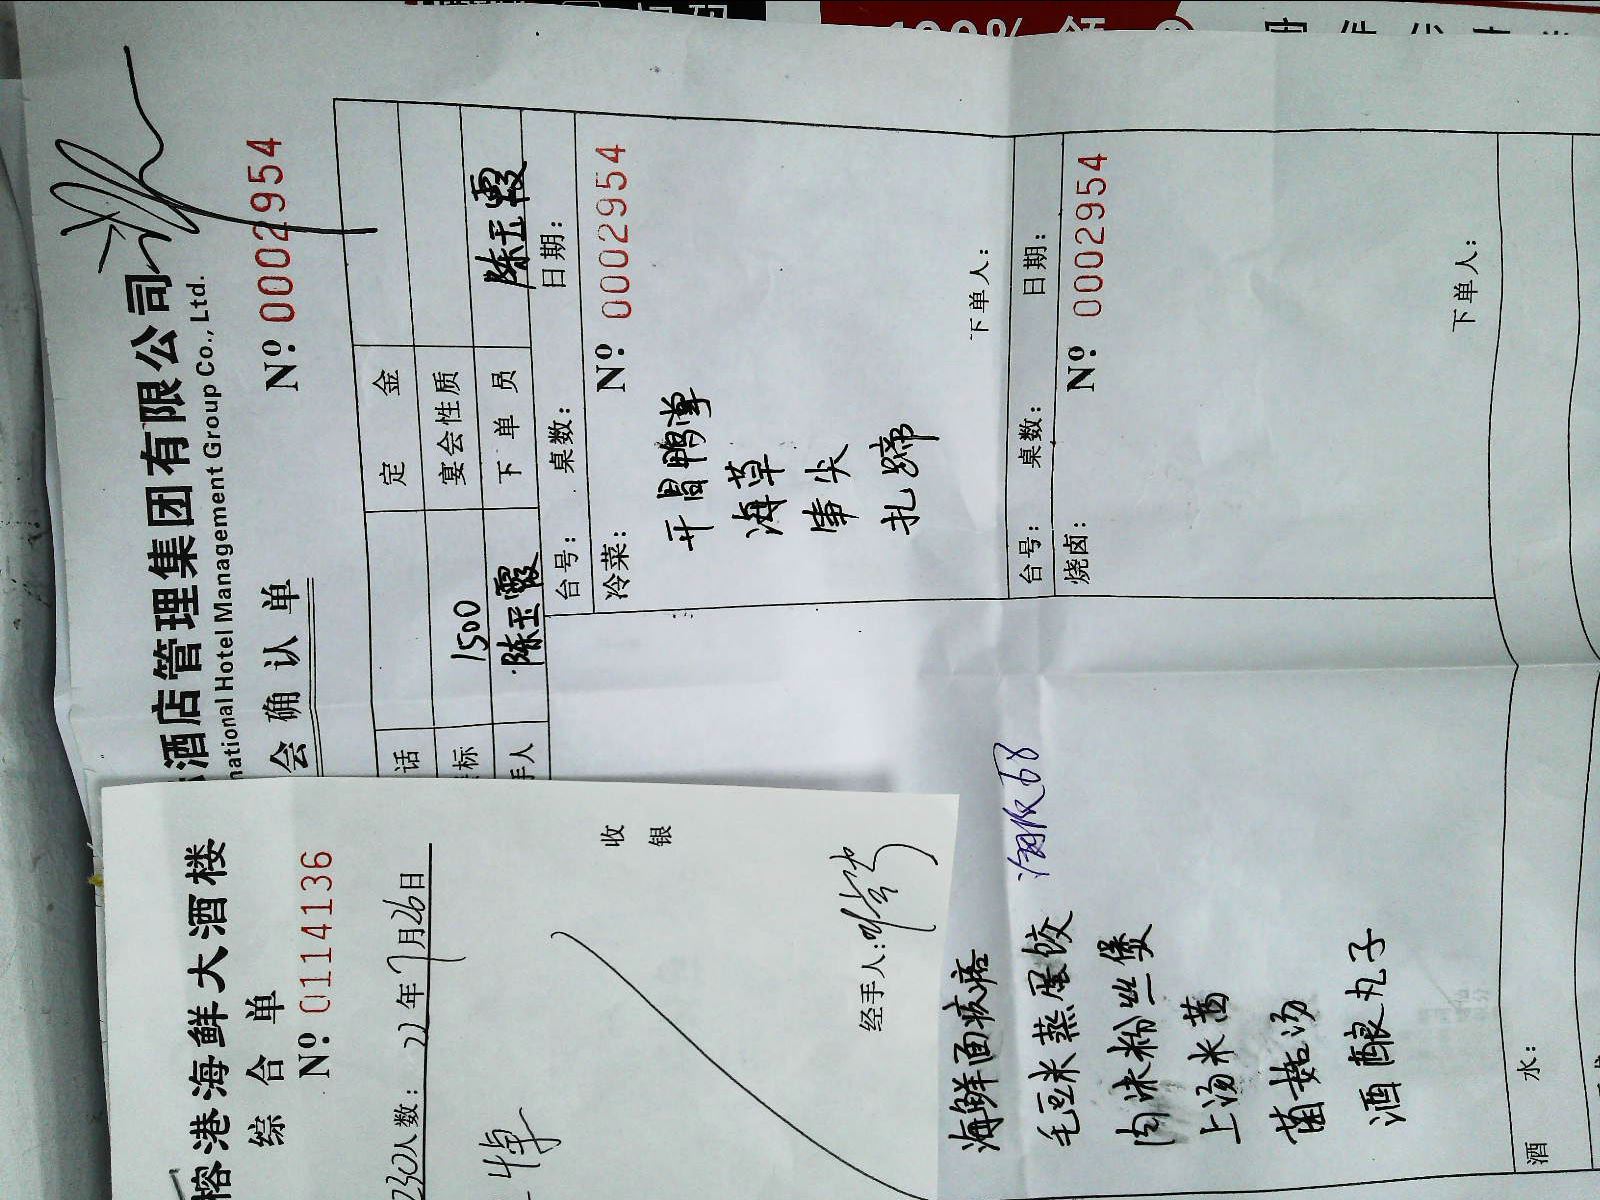 酒店管理集团有限公司
national Hotel Management Group Co., Ltd.
会确认单
Nº: 0002954
话
定金
标
1500
宴会性质
手人
陈玉霞
下单员
陈玉霞
台号:
桌数:
日期:
冷菜:
Nº: 0002954
开胃鸭掌
海草
笋尖
扎蹄
下单人:
台号:
桌数:
日期:
烧卤:
Nº: 0002954
下单人:
榕港海鲜大酒楼
综合单
Nº: 0114136
230人数: 22年7月26日
收银
经手人:
海鲜面疙瘩
毛豆米蒸蛋饺
肉沫粉丝煲
上汤米苋
菌菇汤
酒酿丸子
酒水: